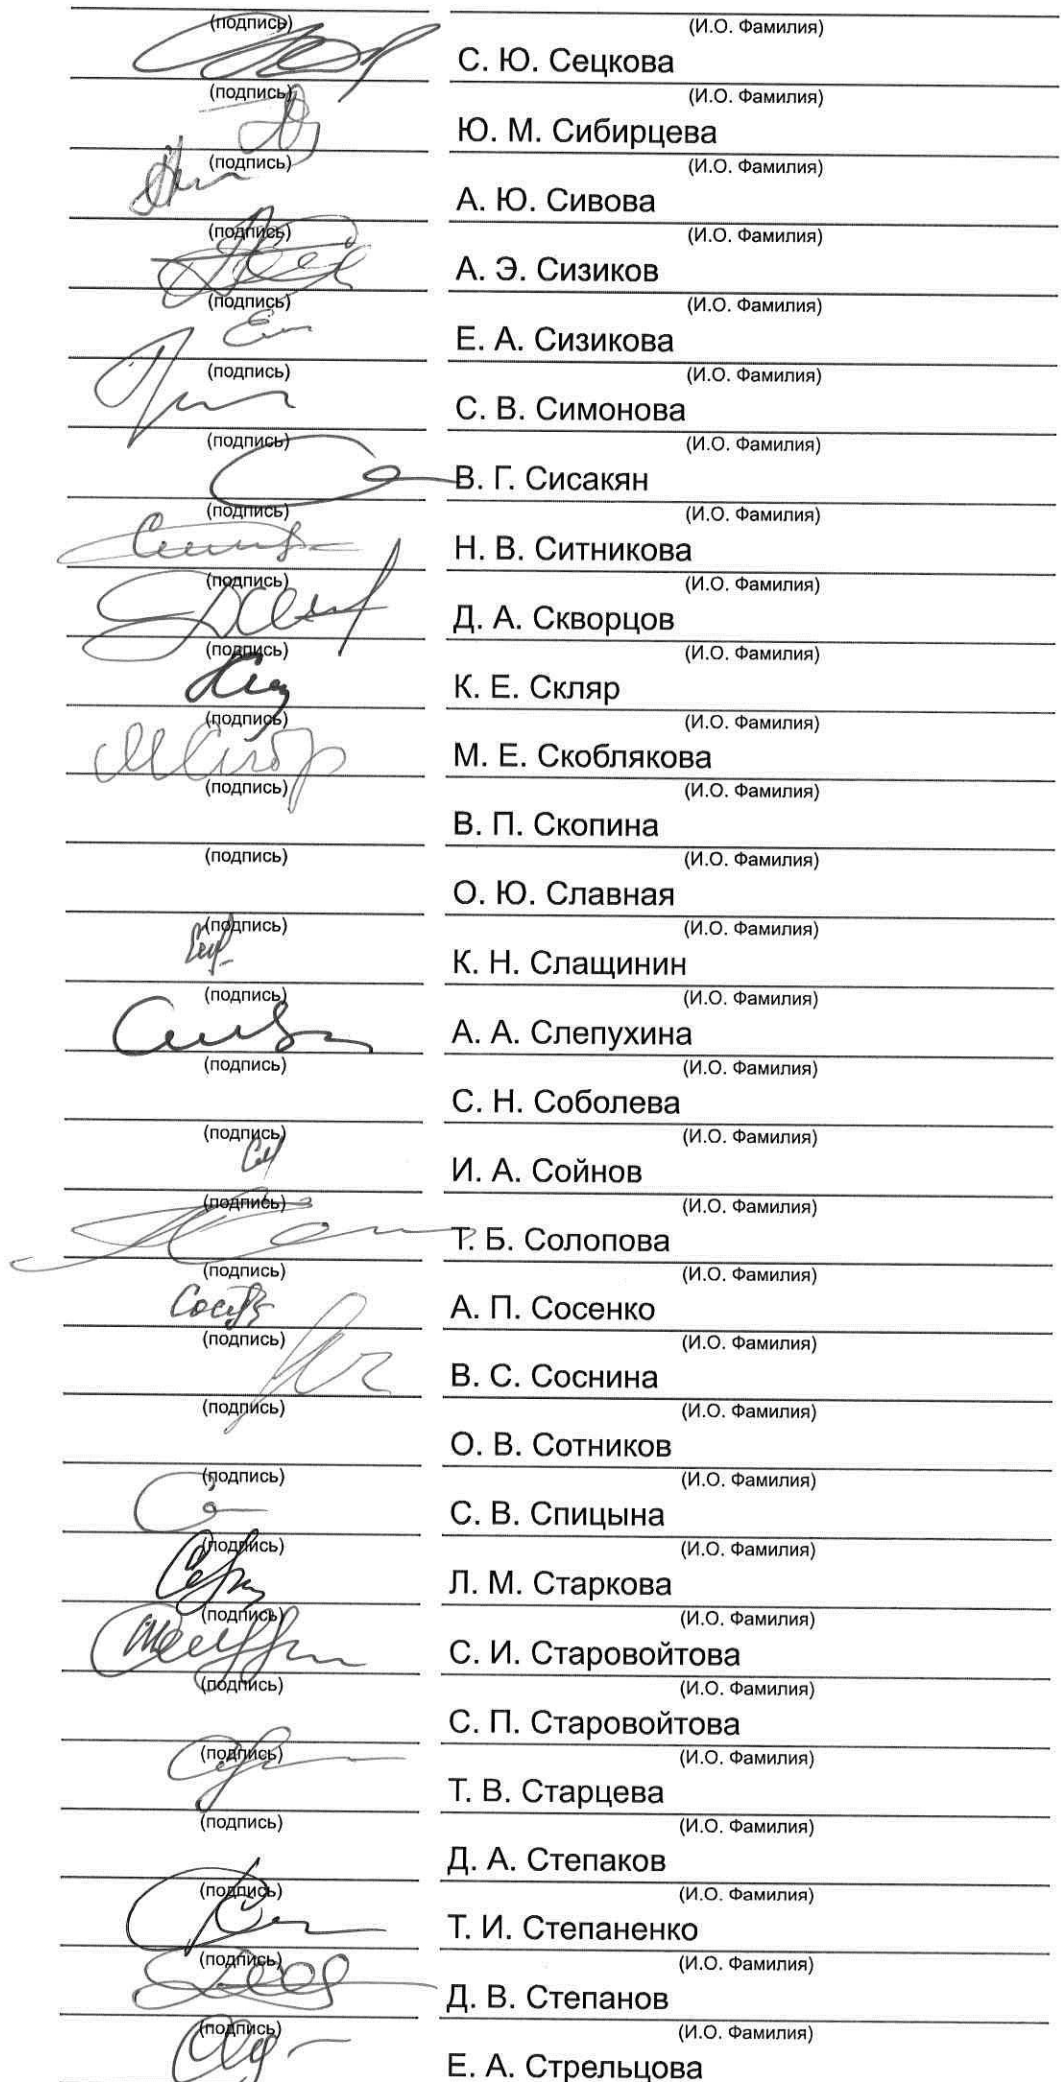 (подпись) (И.О. Фамилия)
С. Ю. Сецкова
(подпись) (И.О. Фамилия)
Ю. М. Сибирцева
(подпись) (И.О. Фамилия)
А. Ю. Сивова
(подпись) (И.О. Фамилия)
А. Э. Сизиков
(подпись) (И.О. Фамилия)
Е. А. Сизикова
(подпись) (И.О. Фамилия)
С. В. Симонова
(подпись) (И.О. Фамилия)
В. Г. Сисакян
(подпись) (И.О. Фамилия)
Н. В. Ситникова
(подпись) (И.О. Фамилия)
Д. А. Скворцов
(подпись) (И.О. Фамилия)
К. Е. Скляр
(подпись) (И.О. Фамилия)
М. Е. Скоблякова
(подпись) (И.О. Фамилия)
В. П. Скопина
(подпись) (И.О. Фамилия)
О. Ю. Славная
(подпись) (И.О. Фамилия)
К. Н. Слащинин
(подпись) (И.О. Фамилия)
А. А. Слепухина
(подпись) (И.О. Фамилия)
С. Н. Соболева
(подпись) (И.О. Фамилия)
И. А. Сойнов
(подпись) (И.О. Фамилия)
Т. Б. Солопова
(подпись) (И.О. Фамилия)
А. П. Сосенко
(подпись) (И.О. Фамилия)
В. С. Соснина
(подпись) (И.О. Фамилия)
О. В. Сотников
(подпись) (И.О. Фамилия)
С. В. Спицына
(подпись) (И.О. Фамилия)
Л. М. Старкова
(подпись) (И.О. Фамилия)
С. И. Старовойтова
(подпись) (И.О. Фамилия)
С. П. Старовойтова
(подпись) (И.О. Фамилия)
Т. В. Старцева
(подпись) (И.О. Фамилия)
Д. А. Степаков
(подпись) (И.О. Фамилия)
Т. И. Степаненко
(подпись) (И.О. Фамилия)
Д. В. Степанов
(подпись) (И.О. Фамилия)
Е. А. Стрельцова